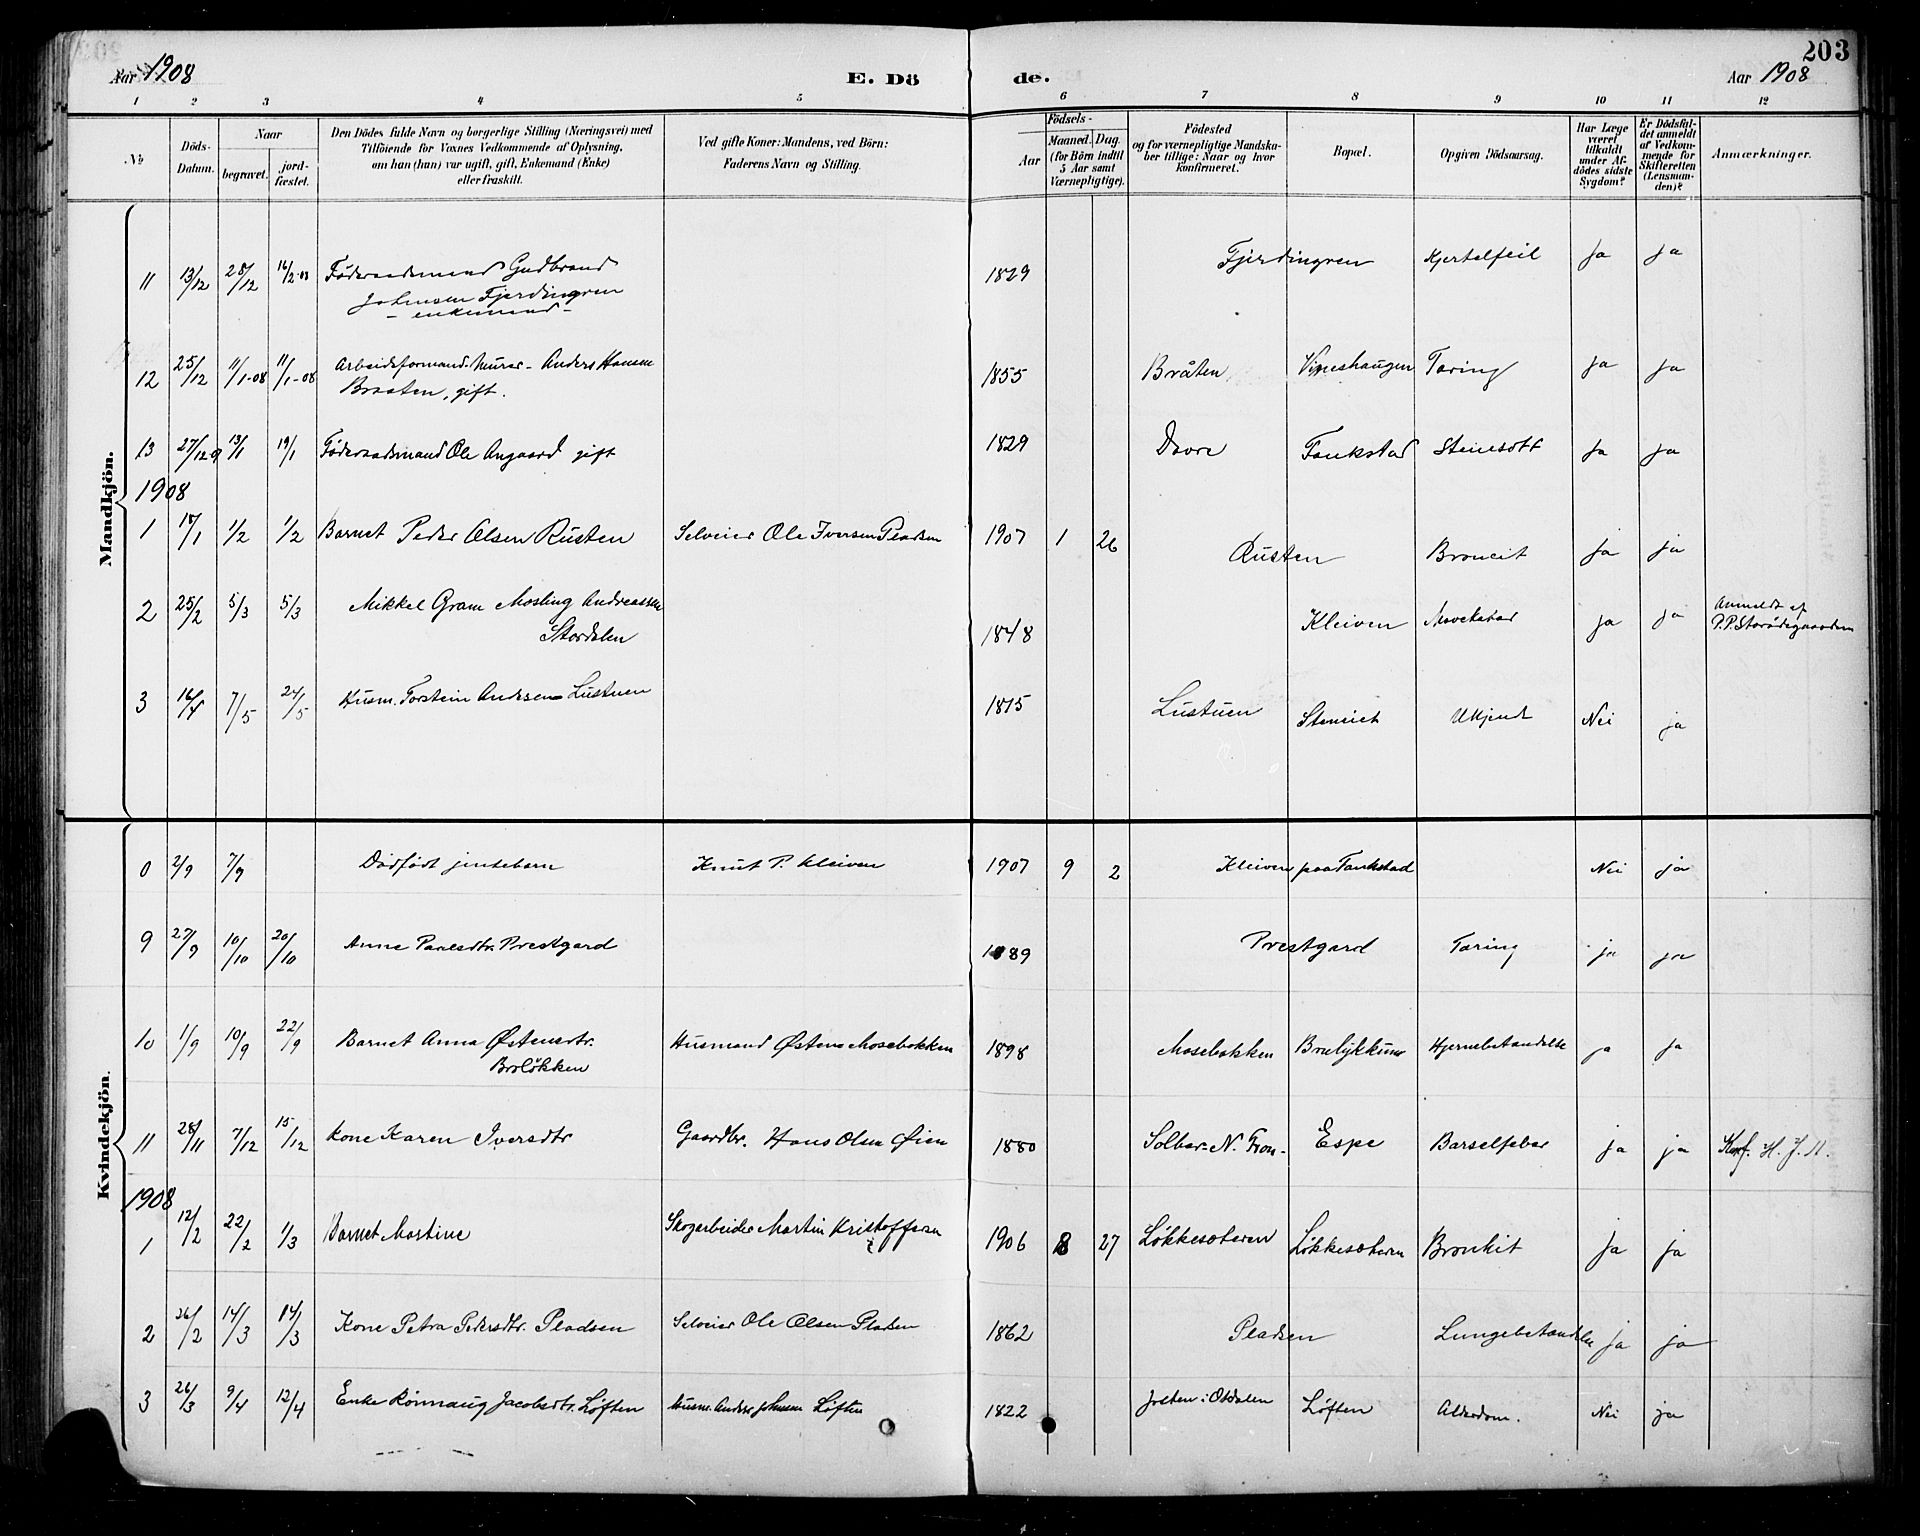 203
Aar 1908 E. Dö de. Aar 1908
1 2 3 4 5 6 7 8 9 10 11 12
No
Döds-Datum.
Naar
begravet.
jordfæstet.
Den Dödes fulde Navn og borgerlige Stilling (Næringsvei) med
Tilföiende for Voxnes Vedkommende af Oplysning,
om han (hun) var ugift, gift, Enkemand (Enke)
eller fraskilt.
Ved gifte Koner: Mandens, ved Börn:
Faderens Navn og Stilling.
Födsels-
Aar
Maaned. Dag.
(for Börn indtil
5 Aar samt
Værnepligtige).
Födested
og for værnepligtige Mandska-
ber tillige: Naar og hvor
konfirmeret.
Bopæl.
Opgiven Dödsaarsag.
Har Læge
været
tilkaldt
under Af-
dödes sidste
Sygdom?
Er Dödsfal-
det anmeldt
af Vedkom-
mende for
Skifteretten
(Lensman-
den)?
Anmærkninger.
Mandkjön.
11 13/12 28/12 16/2-08 Föderaadsmand Gudbrand 1829 Fjerdingren Kjertelfeil Ja Ja
Johnsen Fjerdingren
- enkemand -
12 25/12 11/1-08 11/1-08 Arbeidsformand. Murer - Anders Hansen 1855 Bråten Vineshaugen Tæring Ja Ja
Braaten, gift.
13 27/12 13/1 19/1 Föderaadsmand Ole Angaard gift 1829 Dovre Tankstad Stensott Ja Ja
1908
1 18/1 1/2 1/2 Barnet Peder Olsen Rusten Selveier Ole Iversen Pladsen 1907 1 26 Rusten Broncit Ja ja
2 25/2 5/3 5/3 Mikkel Gram Mosling Andreassen 1848 Kleiven ja ja Anmeldt af
Stordalen
3 16/4 7/5 24/5 Husm. Torstein Andersen Lustuen 1815 Lustuen Ukjendt Nei ja
Kvindekjön.
0 2/9 7/9 Dödfödt jentebarn Knut P. Kleiven 1907 9 2 Kleiven paa Tankstad Nei ja
9 27/9 10/10 20/10 Anne Paulsdtr. Prestgard 1889 Prestgard Tæring ja ja
10 1/9 10/9 22/9 Barnet Anna Østensdtr. Husmand Østen Mosebakken 1898 Mosebakken Hjernebetændelse ja ja
Broløkken
11 28/11 7/12 15/12 Kone Karen Iversdtr Gaardbr. Hans Olsen Øien 1880 Solbær - N. Fron - Espe Barselfeber ja ja
1908
1 12/2 22/2 1/3 Barnet Martine Skogarbeider Martin Kristoffersen 1906 8 27 Løkkesæteren Løkkesæteren Bronkit Ja ja
2 26/2 14/3 14/3 Kone Petra Pedersdtr. Pladsen Selveier Ole Olsen Pladsen 1862 Pladsen Lungebetændelse ja ja
3 26/3 9/4 12/4 Enke Rönnaug Jacobsdtr. Løften Husm. Anders Johnsen Løften 1822 Løften Alderdom. Nei ja